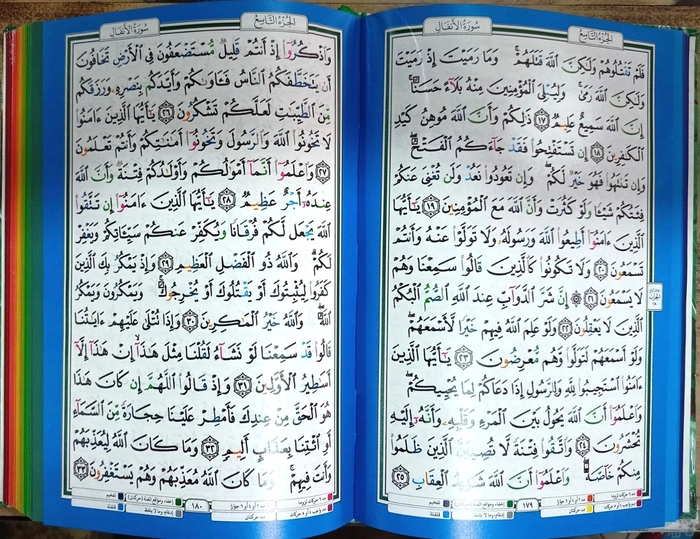 الجزء التاسع
سورة الأنفال
فَلَمْ تَقْتُلُوهُمْ وَلَٰكِنَّ ٱللَّهَ قَتَلَهُمْ ۚ وَمَا رَمَيْتَ إِذْ رَمَيْتَ
وَلَٰكِنَّ ٱللَّهَ رَمَىٰ ۚ وَلِيُبْلِيَ ٱلْمُؤْمِنِينَ مِنْهُ بَلَآءً حَسَنًا ۚ
إِنَّ ٱللَّهَ سَمِيعٌ عَلِيمٌ ١٧ ذَٰلِكُمْ وَأَنَّ ٱللَّهَ مُوهِنُ كَيْدِ
ٱلْكَٰفِرِينَ ١٨ إِن تَسْتَفْتِحُوا۟ فَقَدْ جَآءَكُمُ ٱلْفَتْحُ ۖ
وَإِن تَنتَهُوا۟ فَهُوَ خَيْرٌ لَّكُمْ ۖ وَإِن تَعُودُوا۟ نَعُدْ وَلَن تُغْنِيَ عَنكُمْ
فِئَتُكُمْ شَيْـًٔا وَلَوْ كَثُرَتْ وَأَنَّ ٱللَّهَ مَعَ ٱلْمُؤْمِنِينَ ١٩ يَٰٓأَيُّهَا
ٱلَّذِينَ ءَامَنُوٓا۟ أَطِيعُوا۟ ٱللَّهَ وَرَسُولَهُۥ وَلَا تَوَلَّوْا۟ عَنْهُ وَأَنتُمْ
تَسْمَعُونَ ٢٠ وَلَا تَكُونُوا۟ كَٱلَّذِينَ قَالُوا۟ سَمِعْنَا وَهُمْ
لَا يَسْمَعُونَ ٢١ ۞ إِنَّ شَرَّ ٱلدَّوَآبِّ عِندَ ٱللَّهِ ٱلصُّمُّ ٱلْبُكْمُ
ٱلَّذِينَ لَا يَعْقِلُونَ ٢٢ وَلَوْ عَلِمَ ٱللَّهُ فِيهِمْ خَيْرًا لَّأَسْمَعَهُمْ ۖ
وَلَوْ أَسْمَعَهُمْ لَتَوَلَّوا۟ وَّهُم مُّعْرِضُونَ ٢٣ يَٰٓأَيُّهَا ٱلَّذِينَ
ءَامَنُوا۟ ٱسْتَجِيبُوا۟ لِلَّهِ وَلِلرَّسُولِ إِذَا دَعَاكُمْ لِمَا يُحْيِيكُمْ ۖ
وَٱعْلَمُوٓا۟ أَنَّ ٱللَّهَ يَحُولُ بَيْنَ ٱلْمَرْءِ وَقَلْبِهِۦ وَأَنَّهُۥٓ إِلَيْهِ
تُحْشَرُونَ ٢٤ وَٱتَّقُوا۟ فِتْنَةً لَّا تُصِيبَنَّ ٱلَّذِينَ ظَلَمُوا۟
مِنكُمْ خَآصَّةً ۖ وَٱعْلَمُوٓا۟ أَنَّ ٱللَّهَ شَدِيدُ ٱلْعِقَابِ ٢٥
١٧٩
الجزء التاسع
سورة الأنفال
وَٱذْكُرُوٓا۟ إِذْ أَنتُمْ قَلِيلٌ مُّسْتَضْعَفُونَ فِي ٱلْأَرْضِ تَخَافُونَ
أَن يَتَخَطَّفَكُمُ ٱلنَّاسُ فَـَٔاوَىٰكُمْ وَأَيَّدَكُم بِنَصْرِهِۦ وَرَزَقَكُم
مِّنَ ٱلطَّيِّبَٰتِ لَعَلَّكُمْ تَشْكُرُونَ ٢٦ يَٰٓأَيُّهَا ٱلَّذِينَ ءَامَنُوا۟
لَا تَخُونُوا۟ ٱللَّهَ وَٱلرَّسُولَ وَتَخُونُوٓا۟ أَمَٰنَٰتِكُمْ وَأَنتُمْ تَعْلَمُونَ
٢٧ وَٱعْلَمُوٓا۟ أَنَّمَآ أَمْوَٰلُكُمْ وَأَوْلَٰدُكُمْ فِتْنَةٌ وَأَنَّ ٱللَّهَ
عِندَهُۥٓ أَجْرٌ عَظِيمٌ ٢٨ يَٰٓأَيُّهَا ٱلَّذِينَ ءَامَنُوٓا۟ إِن تَتَّقُوا۟
ٱللَّهَ يَجْعَل لَّكُمْ فُرْقَانًا وَيُكَفِّرْ عَنكُمْ سَيِّـَٔاتِكُمْ وَيَغْفِرْ
لَكُمْ ۗ وَٱللَّهُ ذُو ٱلْفَضْلِ ٱلْعَظِيمِ ٢٩ وَإِذْ يَمْكُرُ بِكَ ٱلَّذِينَ
كَفَرُوا۟ لِيُثْبِتُوكَ أَوْ يَقْتُلُوكَ أَوْ يُخْرِجُوكَ ۚ وَيَمْكُرُونَ وَيَمْكُرُ
ٱللَّهُ ۖ وَٱللَّهُ خَيْرُ ٱلْمَٰكِرِينَ ٣٠ وَإِذَا تُتْلَىٰ عَلَيْهِمْ ءَايَٰتُنَا
قَالُوا۟ قَدْ سَمِعْنَا لَوْ نَشَآءُ لَقُلْنَا مِثْلَ هَٰذَآ ۙ إِنْ هَٰذَآ إِلَّآ
أَسَٰطِيرُ ٱلْأَوَّلِينَ ٣١ وَإِذْ قَالُوا۟ ٱللَّهُمَّ إِن كَانَ هَٰذَا
هُوَ ٱلْحَقَّ مِنْ عِندِكَ فَأَمْطِرْ عَلَيْنَا حِجَارَةً مِّنَ ٱلسَّمَآءِ
أَوِ ٱئْتِنَا بِعَذَابٍ أَلِيمٍ ٣٢ وَمَا كَانَ ٱللَّهُ لِيُعَذِّبَهُمْ
وَأَنتَ فِيهِمْ ۚ وَمَا كَانَ ٱللَّهُ مُعَذِّبَهُمْ وَهُمْ يَسْتَغْفِرُونَ ٣٣
١٨٠